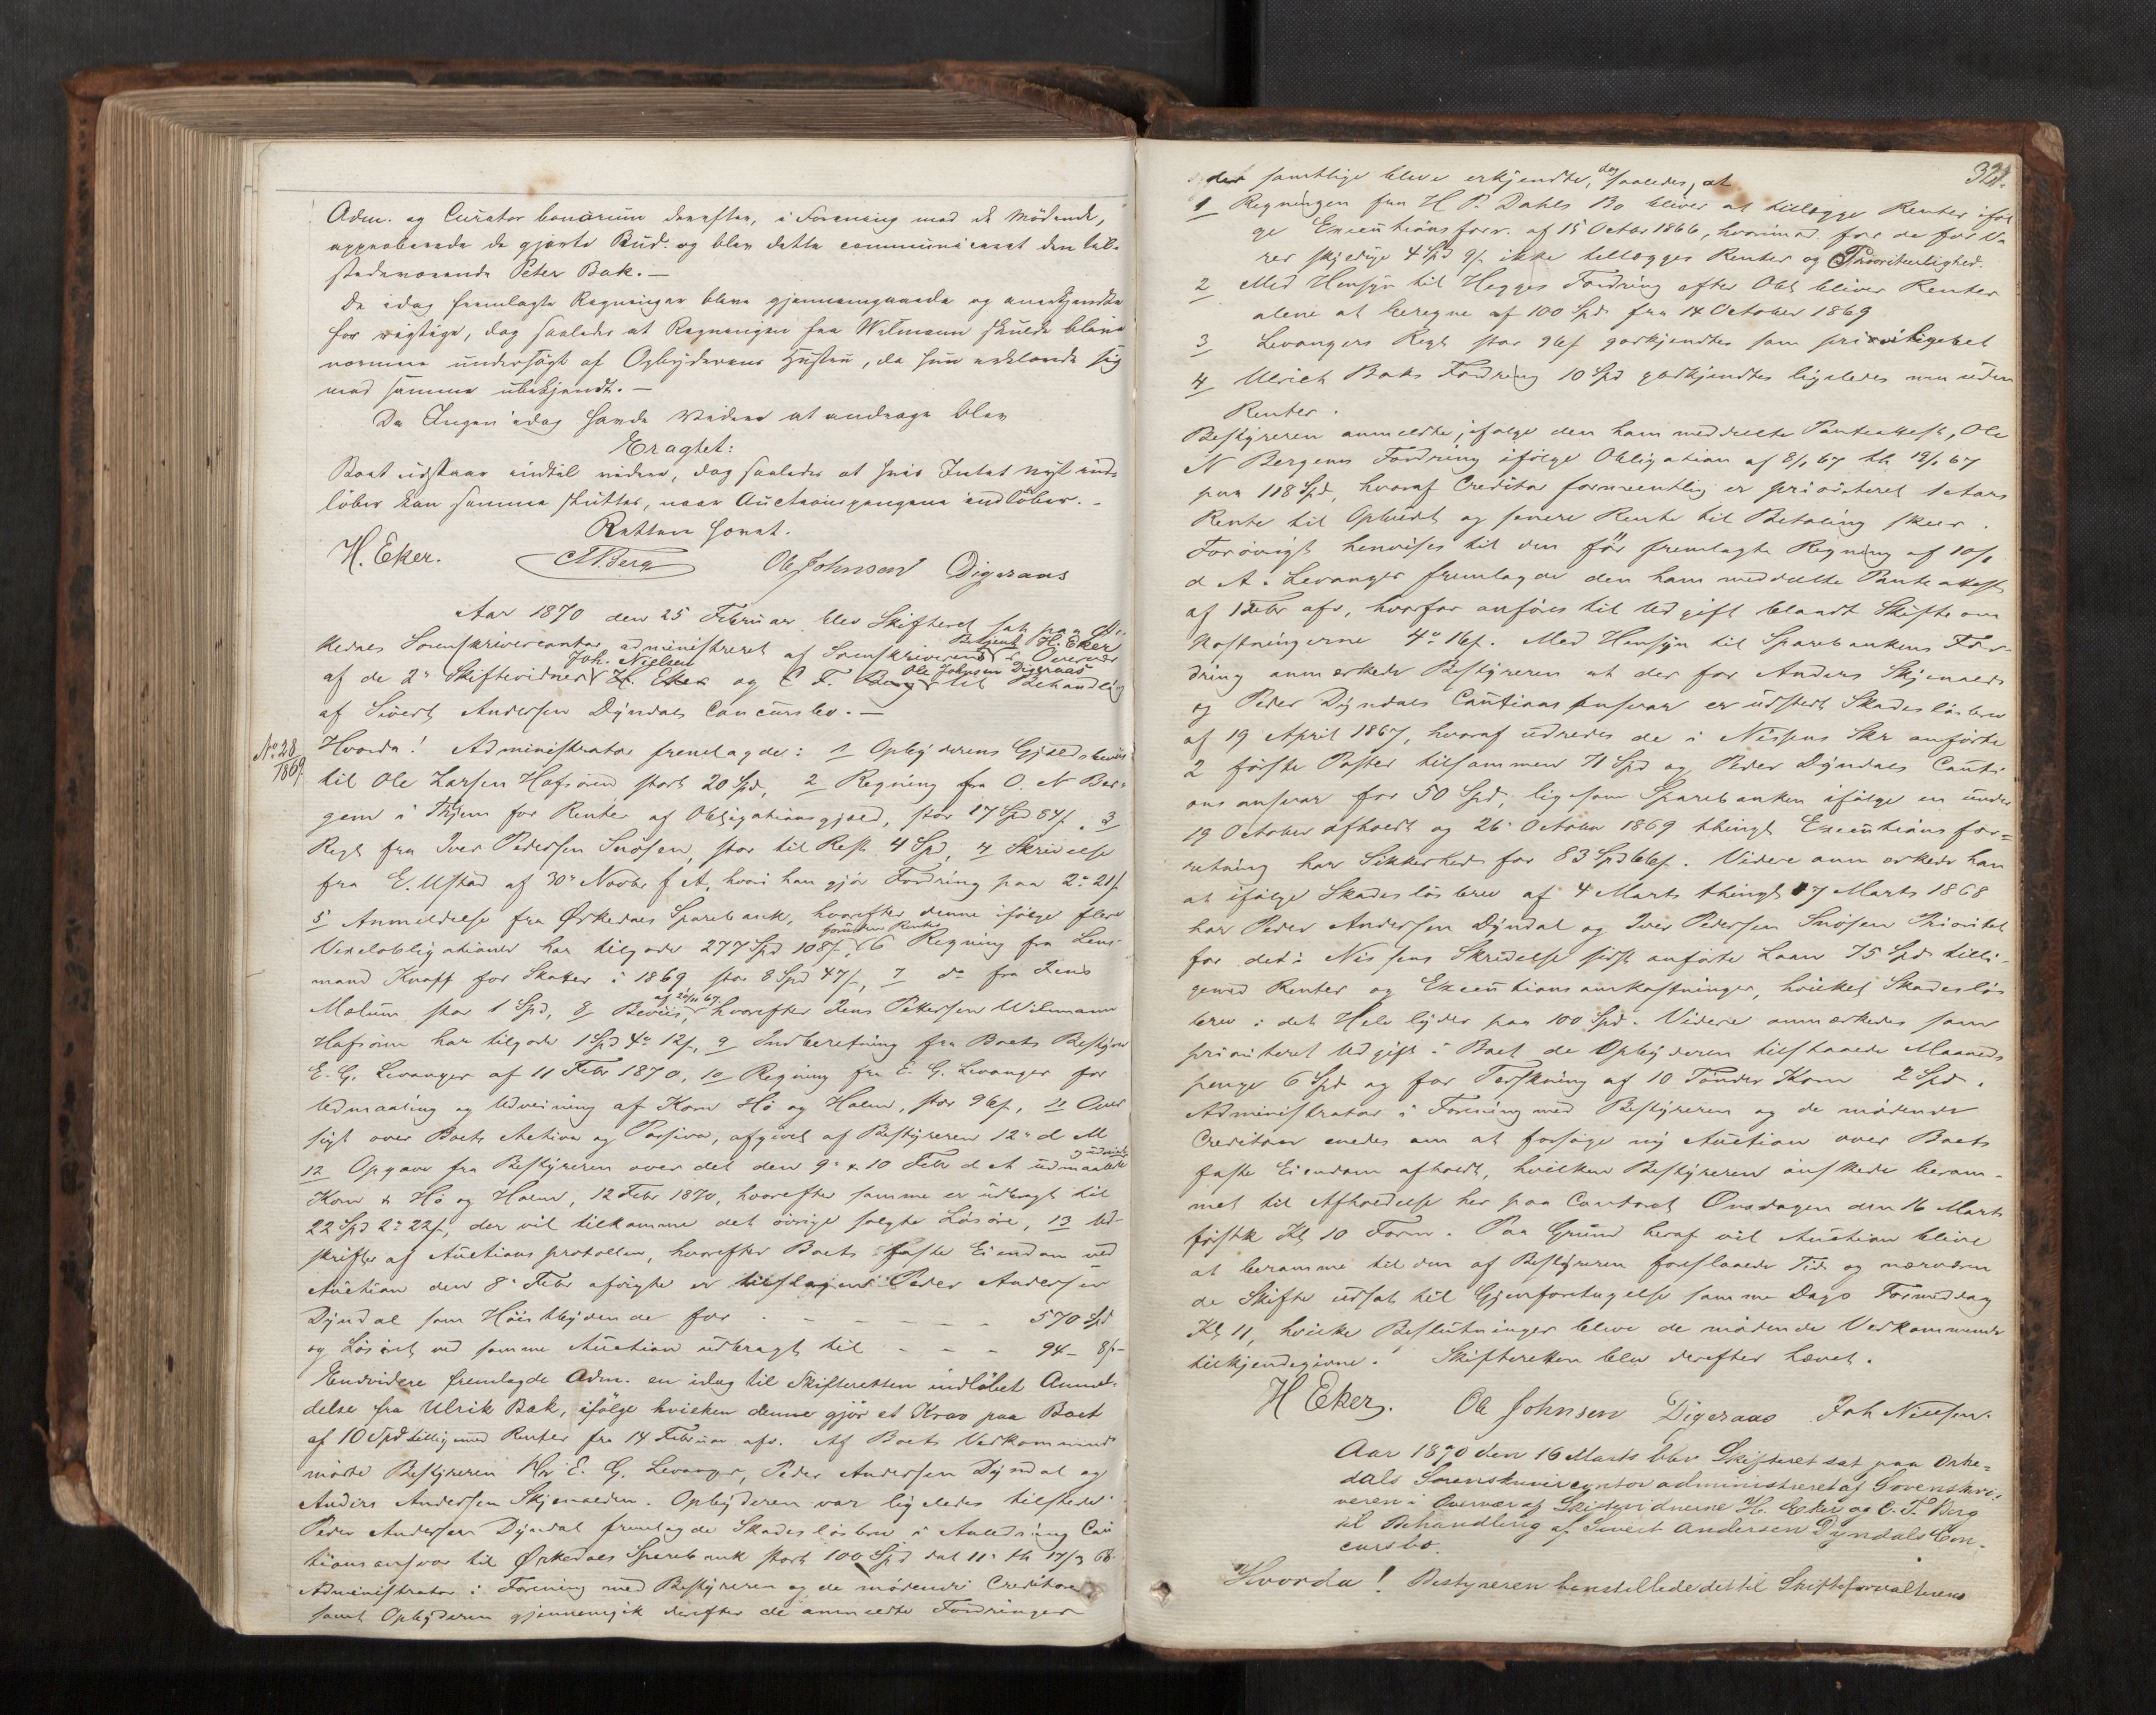 Adm. og Curator bonorum derefter, i Forening med de Mödende,
approberede de gjorte Bud. og blev dette communiceret den tilste-
stedeværende Peter Bak. —
De idag fremlagte Regninger bleve gjennemgaaede og anerkjendte
for rigtige, dog saaledes at Regningen fra Wilmann skulde blive
nærmere undersögt af Opbyderens Hustru, da hun erklærede sig
med samme ubekjendt. —
Da Ingen idag havde videre at andrage blev
Eragtet:
Boet udstaar indtil videre, dog saaledes at hvis Intet nyt ind-
löber kan samme sluttes, naar Auctionspengene indlöber. —
Retten hævet.
H. Eker. CTBerg Ole Johnsen Digeraas
Aar 1870 den 25 Februar blev Skifteret sat paa Or-
kedals Sorenskrivercontor administreret af Sorenskriverens Betjent H. Eker i Overvær
af de 2 Skiftevidner Joh. Nielsen H. Eker og C T. Berg Ole Johnsen Digeraas til Behandling
af Sivert Andersen Dyndals Concursbo. —
No 28/1869
Hvorda! Administrator fremlagde: 1 Opbyderens Gjældsbeviis
til Ole Larsen Hofsöien stort 20 Spd, 2 Regning fra O. N Ber-
gem i Thjem for Renter af Obligationsgjæld, stor 17 Spd 84 s, 3
Regn fra Iver Pedersen Snösen, stor til Rest 4 Spd, 4 Skrivelse
fra E. Ustad af 30 Novbr f A, hvori han gjör Fordring paa 2 21 s
5 Anmeldelse fra Ørkedals Sparebank, hvorefter denne ifölge flere
Vexelobligationer har tilgode 277 Spd 108 s foruden Renter, 6 Regning fra Lens-
mand Knoff for Skatter i 1869 stor 8 Spd 47 s, 7 do fra Jens
Mælum stor 1 Spd, 8 Beviis af 20/11 67, hvorefter Jens Pettersen Wilmann
Hofsöien har tilgode 1 Spd 4 12 s, 9 Indberetning fra Boets Bestyrer
E. G. Levanger af 11 Febr 1870, 10 Regning fra E. G. Levanger for
Udmaaling og Udveining af Korn Hö og Halm, stor 96 s, 11 Over
sigt over Boets Activa og Passiva, afgivet af Bestyreren 12 d M
12 Opgave fra Bestyreren over det den 9 & 10 Febr d A udmaalte og udveiede
Korn & Hö og Halm, 12 Febr 1870, hvorefter samme er udbragt til
22 Spd 2 22 s, der vil tilkomme det övrige solgte Lösöre, 13 Ud-
skrifter af Auctionsprotocollen, hvorefter Boets faste Eiendom ved
Auction den 8 Febr afvigte er tilslagen Peder Andersen
Dyndal som Höistbydende for - - - - - - 570 Spd
og Lösöret ved samme Auction udbragt til - - - 94 - 8 s -
Endvidere fremlagde Adm. en idag til Skifteretten indlöbet Anmel-
delse fra Ulrik Bak, ifölge hvilken denne gjör et Krav paa Boet
af 10 Spd tilligemed Renter fra 14 Februar afv. Af Boets Vedkommende
mödte Bestyreren Hr E. G. Levanger, Peder Andersen Dyndal og
Anders Andersen Skjenalden. Opbyderen var ligeledes tilstede.
Peder Andersen Dyndal fremlagde Skadeslösbrev i Anledning Cau
tionsansvar til Ørkedals Sparebank stort 100 Spd dat 11 th 17/3 68.
Administrator i Forening med Bestyreren og de mödende Creditorer
samt Opbyderen gjennemgik derefter de anmeldte Fordringer
322.
der samtlige bleve erkjendte, dog saaledes, at
1 Regningen fra H P. Dahls Bo bliver at tillægge Renter iföl
ge Executionsforr. af 15 Octbr 1866, hvorimod for de for Va
rer skyldige 4 Spd 9 s ikke tillægges Renter og Prioriteerlighed.
2 Med Hensyn til Hegges Fordring efter Obl bliver Renter
alene at beregne af 100 Spd fra 14 October 1869
3 Levangers Regn stor 96 s godkjendtes som priviligeret
4 Ulrich Baks Fordring 10 Spd godkjendtes ligeledes men uden
Renter.
Bestyreren anmeldte, ifølge den ham meddeelte Panteattest, Ole
N Bergems Fordring ifölge Obligation af 8/1 67 th 19/1 67
paa 118 Spd, hvoraf Creditor formeentlig er prioriteret 1 Aars
Rente til Opbudet og senere Rente til Betaling skeer.
Forövrigt henvises til den för fremlagte Regning af 10/1
d A. Levanger fremlagde den ham meddeelte Panteattest
af 1 Febr afv, hvorfor anföres til Udgift blandt Skifteom
kostningerne 4 16 s. Med Hensyn til Sparebankens For-
dring anmærkede Bestyreren at der for Anders Skjenalds
og Peder Dyndals Cautionsansvar er udstedt Skadeslösbrev
af 19 April 1867, hvoraf udredes de i Nissens Skr anförte
2 förste Poster tilsammen 71 Spd og Peder Dyndals Cauti-
onsansvar for 50 Spd, ligesom Sparebanken ifölge en under
19 October afholdt og 26 October 1869 thingl Executionsfor-
retning har Sikkerhed for 83 Spd 66 s. Videre anmærkede han
at ifölge Skadeslösbrev af 4 Marts thingl 17 Marts 1868
har Peder Andersen Dyndal og Iver Pedersen Snösen Prioritet
for det i Nissens Skrivelse sidst anförte Laan 75 Spd tilli-
gemed Renter og Executionsomkostninger, hvilket Skadeslös
brev i det Hele lyder paa 100 Spd. Videre anmærkedes som
prioriteret Udgift i Boet de Opbyderen tilstaaede Maaneds
penge 6 Spd og for Terskning af 10 Tönder Korn 2 Spd.
Administrator i Forening med Bestyreren og de mödende
Creditorer enedes om at forsöge ny Auction over Boets
faste Eiendom afholdt, hvilken Bestyreren önskede beram-
met til Afholdelse her paa Contoret Onsdagen den 16 Marts
förstk Kl 10 Form. Paa Grund heraf vil Auction blive
at beramme til den af Bestyreren foreslaaede Tid og nærværen
de Skifte udsat til Gjenforetagelse samme Dags Formiddag
Kl 11, hvilke Beslutninger bleve de mödende Vedkommende
tilkjendegivne. Skifteretten blev derefter hævet.
H Eker. Ole Johnsen Digeraas Joh Nielsen.
Aar 1870 den 16 Marts blev Skifteret sat paa Orke-
dals Sorenskrivercontor administreret af Sorenskri-
veren i Overvær af Skiftevidnerne H. Eker og C. T. Berg
til Behandling af Sivert Andersen Dyndals Con-
cursbo.
Hvorda! Bestyreren henstillede det til Skifteforvalterens